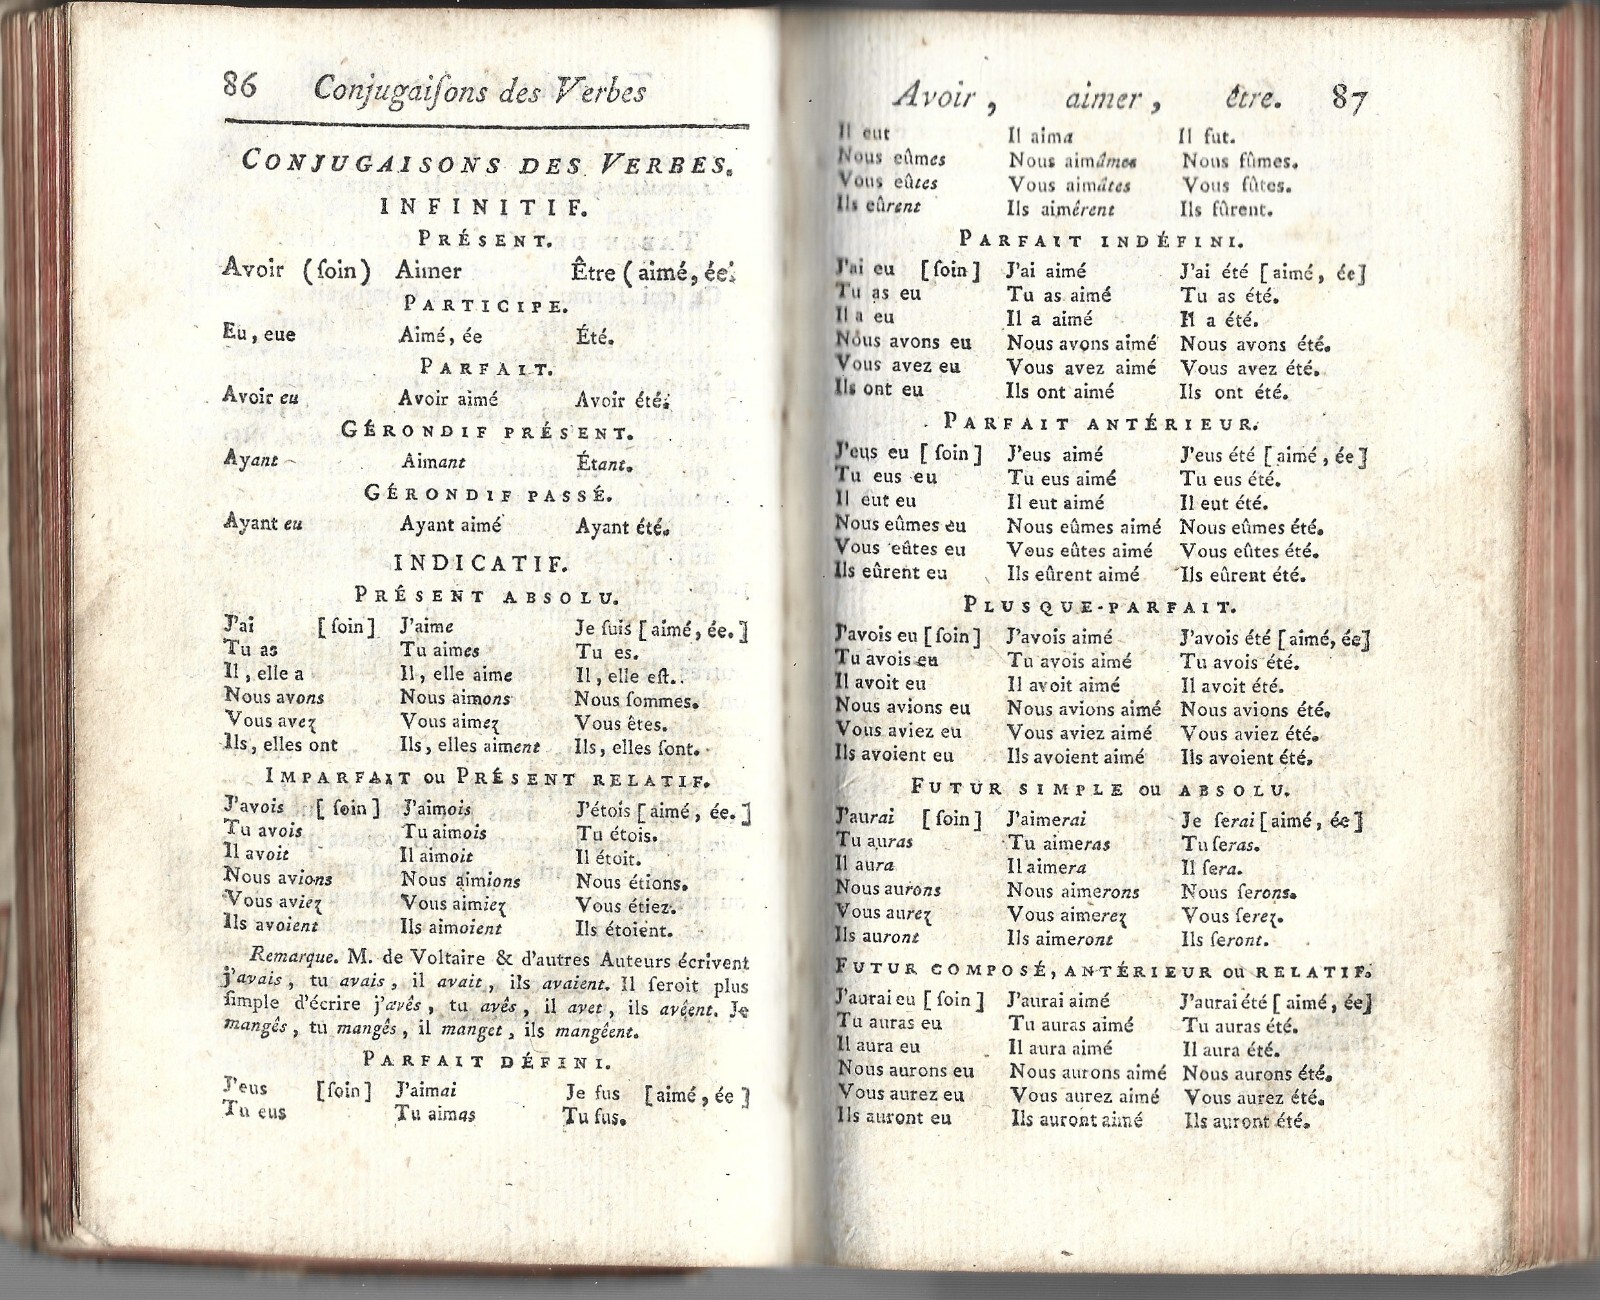 86 Conjugaiſons des Verbes
CONJUGAISONS DES VERBES.
INFINITIF.
PRÉSENT.
Avoir (ſoin) Aimer Être (aimé, ée.
PARTICIPE.
Eu, eue Aimé, ée Été.
PARFAIT.
Avoir eu Avoir aimé Avoir été.
GÉRONDIF PRÉSENT.
Ayant Aimant Étant.
GÉRONDIF PASSÉ.
Ayant eu Ayant aimé Ayant été.
INDICATIF.
PRÉSENT ABSOLU.
J'ai [ſoin] J'aime Je ſuis [aimé, ée.]
Tu as Tu aimes Tu es.
Il, elle a Il, elle aime Il, elle eſt.
Nous avons Nous aimons Nous ſommes.
Vous avez Vous aimez Vous êtes.
Ils, elles ont Ils, elles aiment Ils, elles ſont.
IMPARFAIT ou PRÉSENT RELATIF.
J'avois [ſoin] J'aimois J'étois [aimé, ée.]
Tu avois Tu aimois Tu étois.
Il avoit Il aimoit Il étoit.
Nous avions Nous aimions Nous étions.
Vous aviez Vous aimiez Vous étiez.
Ils avoient Ils aimoient Ils étoient.
Remarque. M. de Voltaire & d'autres Auteurs écrivent
j'avais, tu avais, il avait, ils avaient. Il ſeroit plus
ſimple d'écrire j'avês, tu avês, il avet, ils avêent. Je
mangês, tu mangês, il manget, ils mangêent.
PARFAIT DÉFINI.
J'eus [ſoin] J'aimai Je fus [aimé, ée]
Tu eus Tu aimas Tu fus.
Avoir, aimer, être. 87
Il eut Il aima Il fut.
Nous eûmes Nous aimâmes Nous fûmes.
Vous eûtes Vous aimâtes Vous fûtes.
Ils eûrent Ils aimêrent Ils fûrent.
PARFAIT INDÉFINI.
J'ai eu [ſoin] J'ai aimé J'ai été [aimé, ée]
Tu as eu Tu as aimé Tu as été.
Il a eu Il a aimé Il a été.
Nous avons eu Nous avons aimé Nous avons été.
Vous avez eu Vous avez aimé Vous avez été.
Ils ont eu Ils ont aimé Ils ont été.
PARFAIT ANTÉRIEUR.
J'eus eu [ſoin] J'eus aimé J'eus été [aimé, ée]
Tu eus eu Tu eus aimé Tu eus été.
Il eut eu Il eut aimé Il eut été.
Nous eûmes eu Nous eûmes aimé Nous eûmes été.
Vous eûtes eu Vous eûtes aimé Vous eûtes été.
Ils eûrent eu Ils eûrent aimé Ils eûrent été.
PLUSQUE-PARFAIT.
J'avois eu [ſoin] J'avois aimé J'avois été [aimé, ée]
Tu avois eu Tu avois aimé Tu avois été.
Il avoit eu Il avoit aimé Il avoit été.
Nous avions eu Nous avions aimé Nous avions été.
Vous aviez eu Vous aviez aimé Vous aviez été.
Ils avoient eu Ils avoient aimé Ils avoient été.
FUTUR SIMPLE ou ABSOLU.
J'aurai [ſoin] J'aimerai Je ſerai [aimé, ée]
Tu auras Tu aimeras Tu ſeras.
Il aura Il aimera Il ſera.
Nous aurons Nous aimerons Nous ſerons.
Vous aurez Vous aimerez Vous ſerez.
Ils auront Ils aimeront Ils ſeront.
FUTUR COMPOSÉ, ANTÉRIEUR ou RELATIF.
J'aurai eu [ſoin] J'aurai aimé J'aurai été [aimé, ée]
Tu auras eu Tu auras aimé Tu auras été.
Il aura eu Il aura aimé Il aura été.
Nous aurons eu Nous aurons aimé Nous aurons été.
Vous aurez eu Vous aurez aimé Vous aurez été.
Ils auront eu Ils auront aimé Ils auront été.